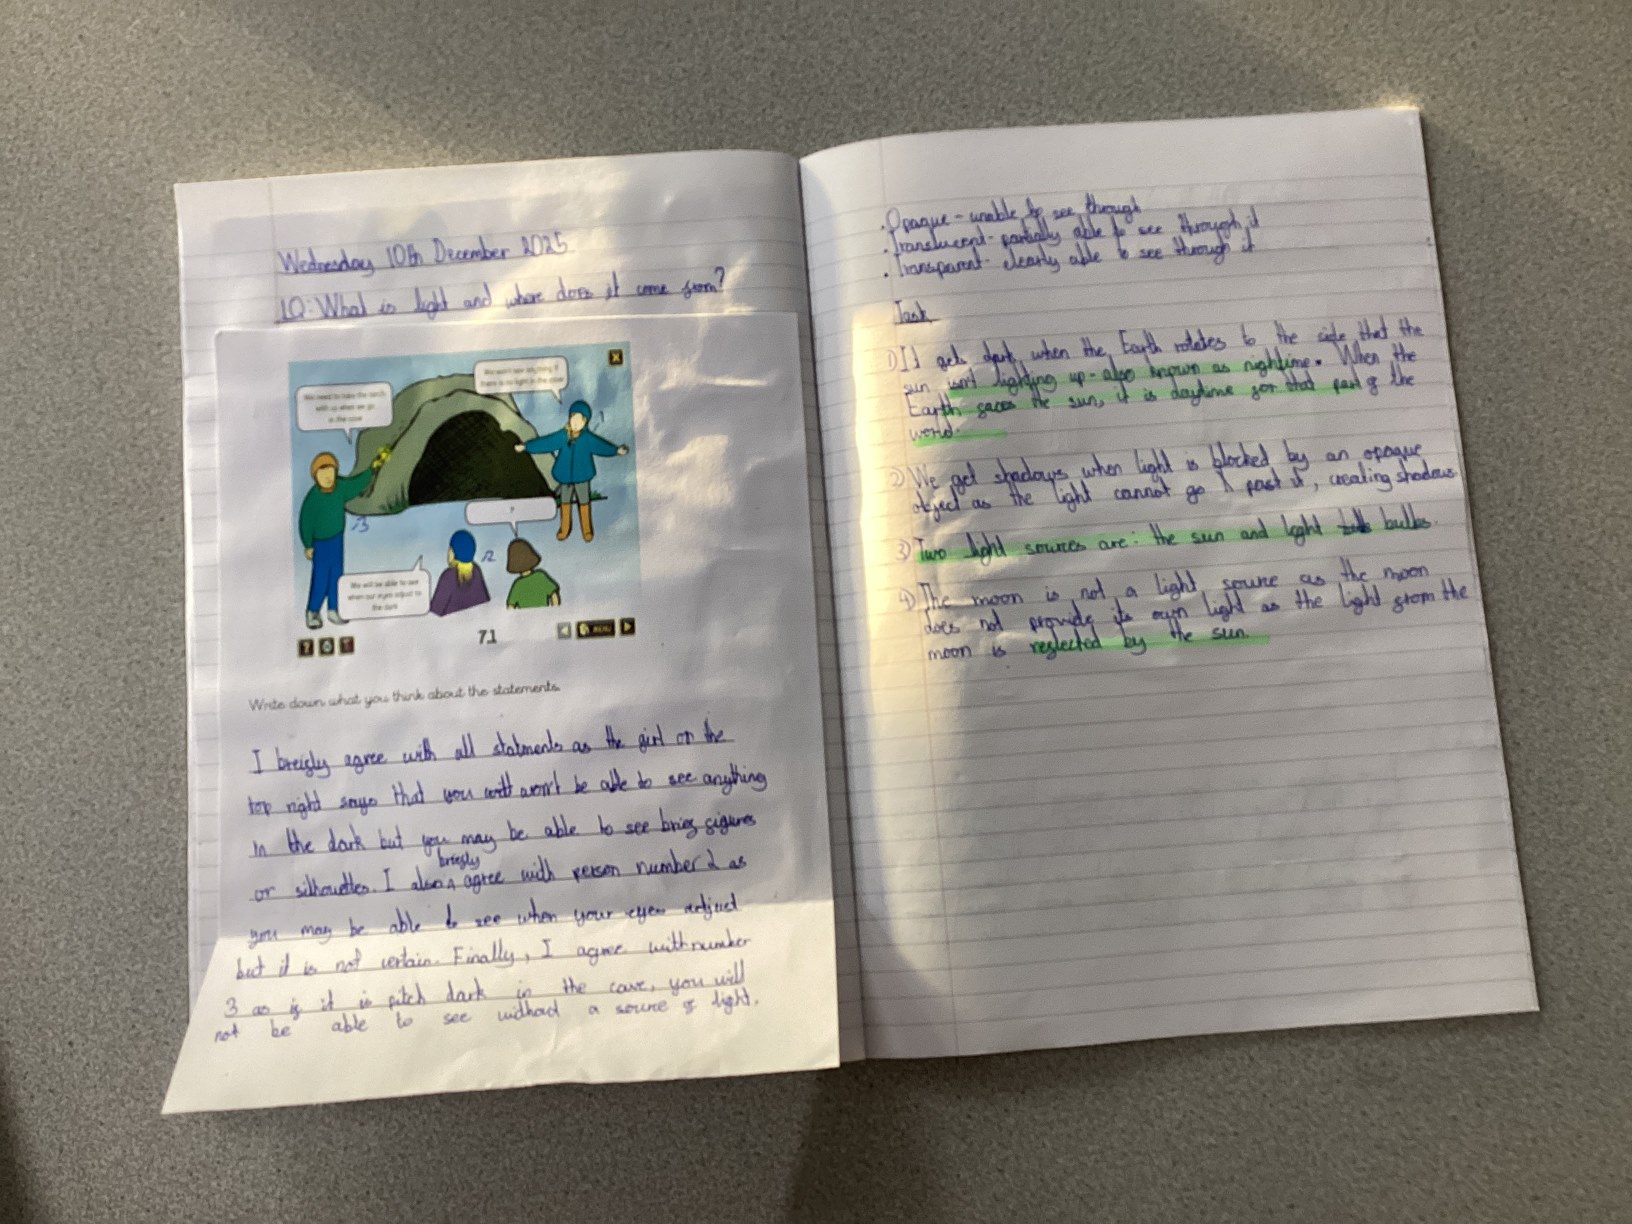 Wednesday 10th December 2025
LQ: What is light and where does it come from?
We need to take the torch
with us when we go
in the cave
We won't see anything if
there is no light in the cave
1
3
?
2
We will be able to see
when our eyes adjust to
the dark
?
7.1
MENU
Write down what you think about the statements.
I breifly agree with all statments as the girl on the
top right says that you will won't be able to see anything
in the dark but you may be able to see brief figures
or silhouettes. I also briefly agree with person number 2 as
you may be able to see when your eyes adjust
but it is not certain. Finally, I agree with number
3 as if it is pitch dark in the cave, you will
not be able to see without a source of light.
. Opaque - unable to see through
. Translucent - partially able to see through it
. Transparent - clearly able to see through it
Task
1) It gets dark when the Earth rotates to the side that the
sun isn't lighting up - also known as nightime. When the
Earth faces the sun, it is daytime for that part of the
world.
2) We get shadows when light is blocked by an opaque
object as the light cannot go past it, creating shadows.
3) Two light sources are: the sun and light bulbs.
4) The moon is not a light source as the moon
does not provide its own light as the light from the
moon is reflected by the sun.